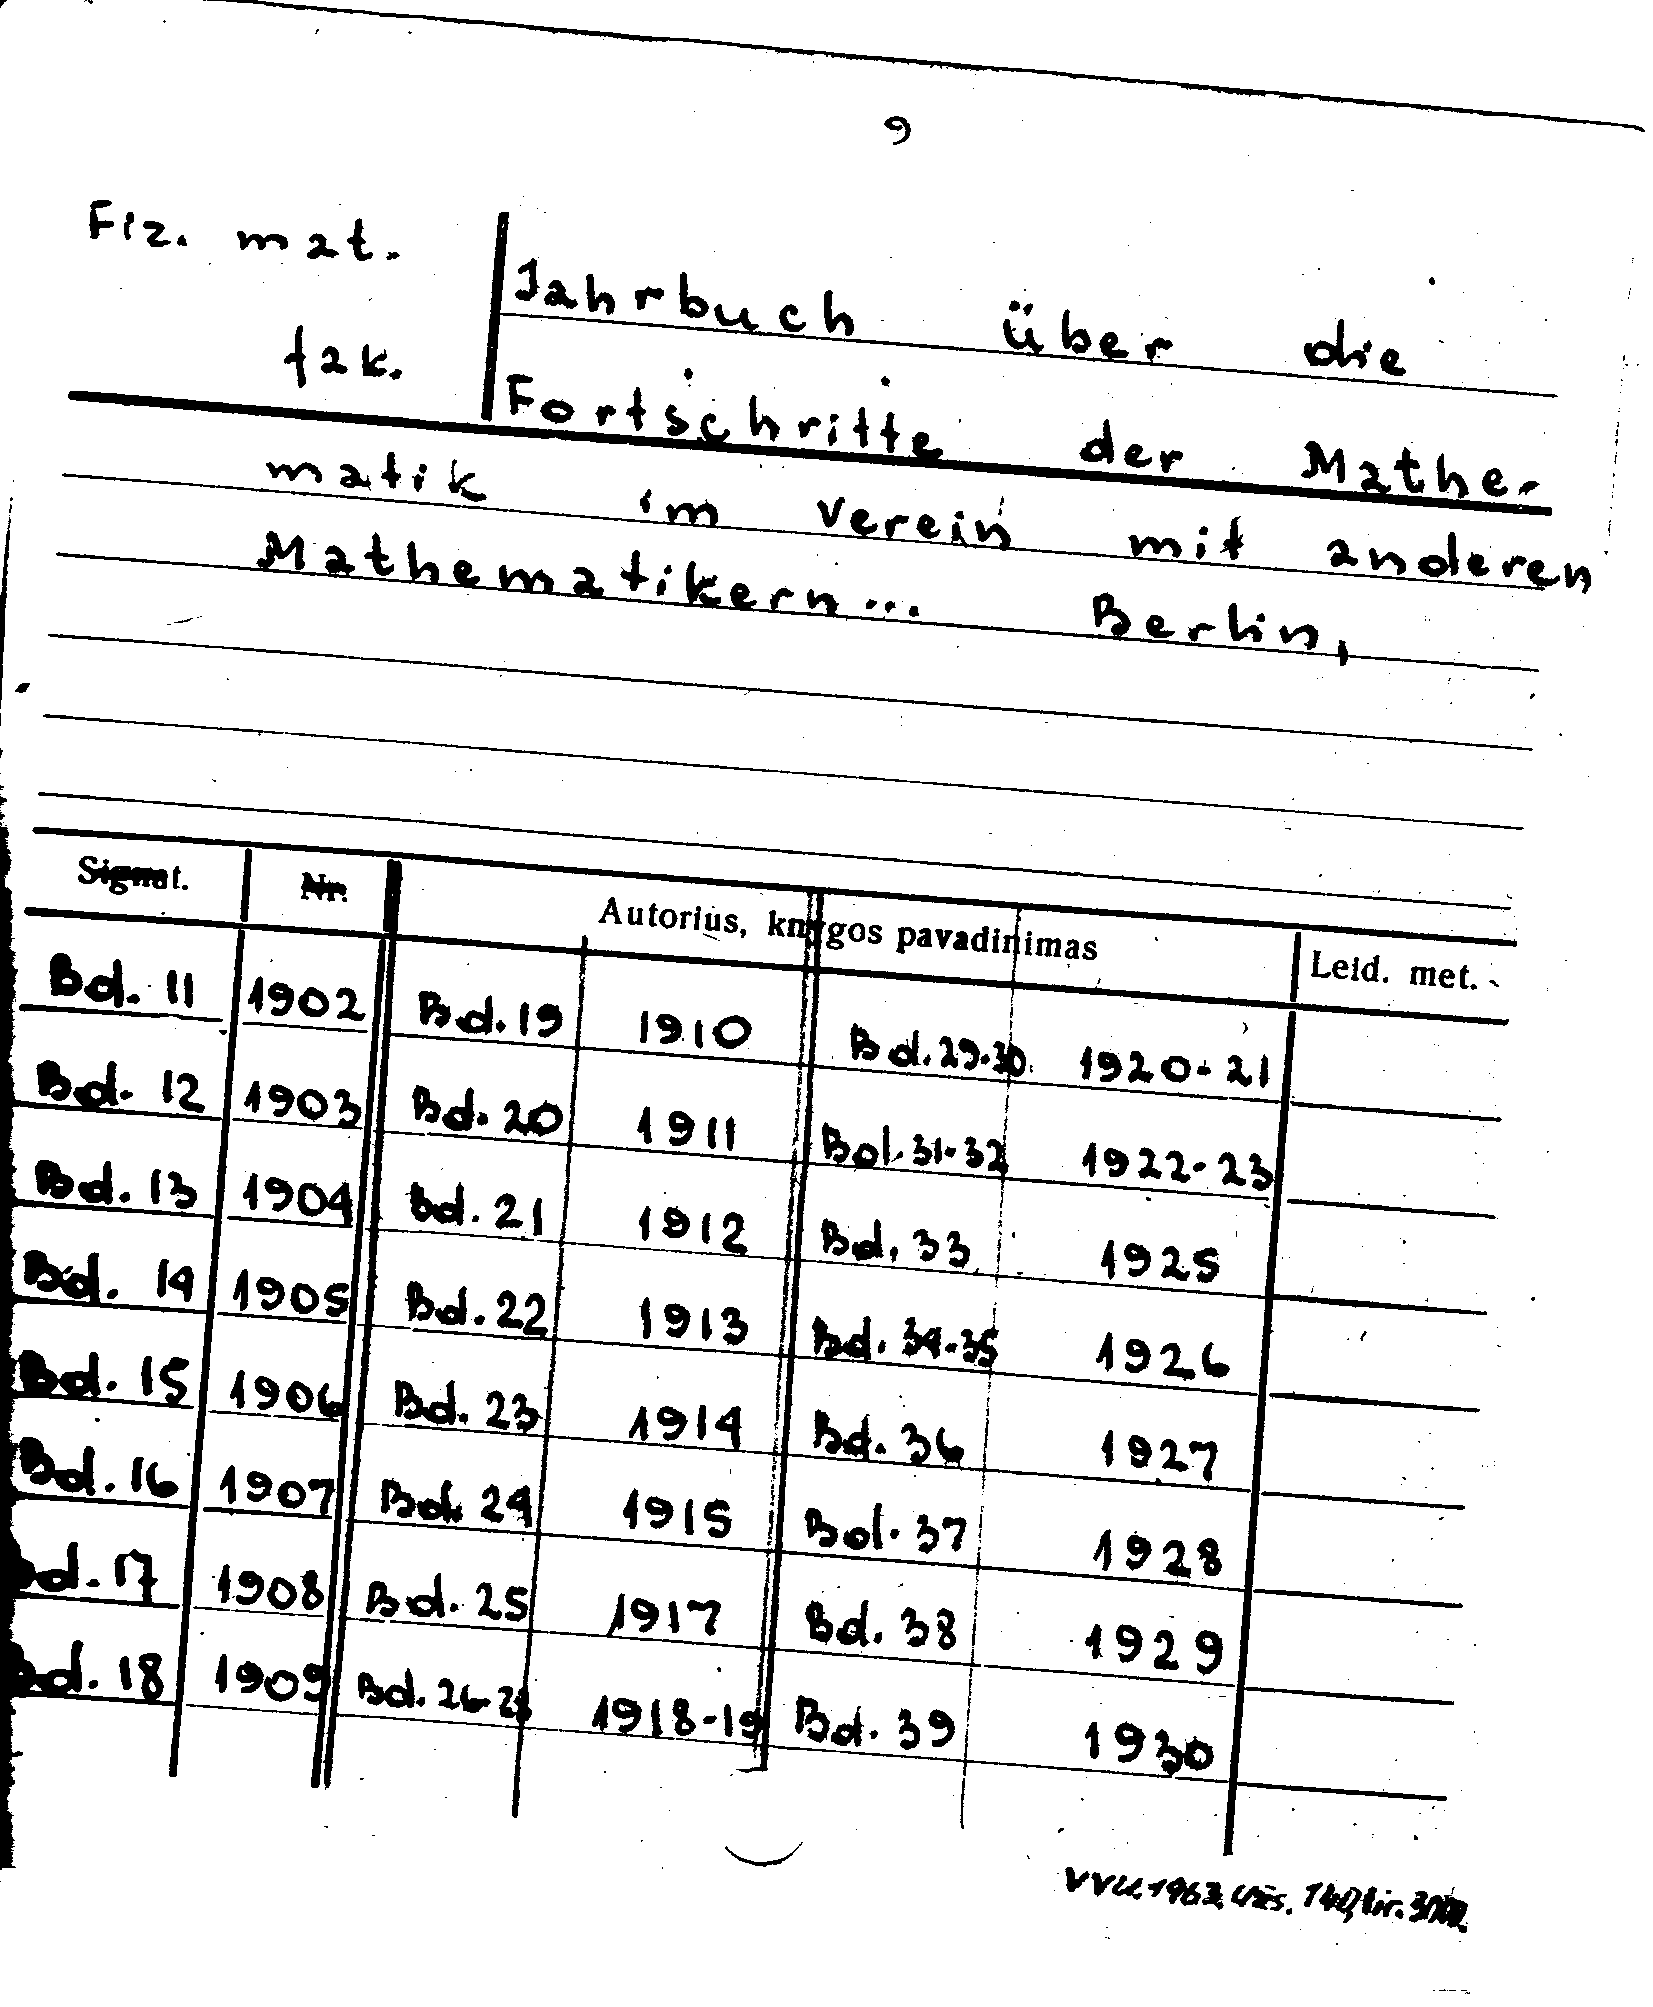 9
Fiz. mat. fak.
Jahrbuch über die
Fortschritte der Mathe-
matik im verein mit anderen
Mathematikern... Berlin,
Signat. Nr. Autorius, knygos pavadinimas Leid. met.
Bd. 11 1902 Bd. 19 1910 Bd. 29-30 1920-21
Bd. 12 1903 Bd. 20 1911 Bd. 31-32 1922-23
Bd. 13 1904 Bd. 21 1912 Bd. 33 1925
Bd. 14 1905 Bd. 22 1913 Bd. 34-35 1926
Bd. 15 1906 Bd. 23 1914 Bd. 36 1927
Bd. 16 1907 Bd. 24 1915 Bd. 37 1928
Bd. 17 1908 Bd. 25 1917 Bd. 38 1929
Bd. 18 1909 Bd. 26-28 1918-19 Bd. 39 1930
VVU. 1963